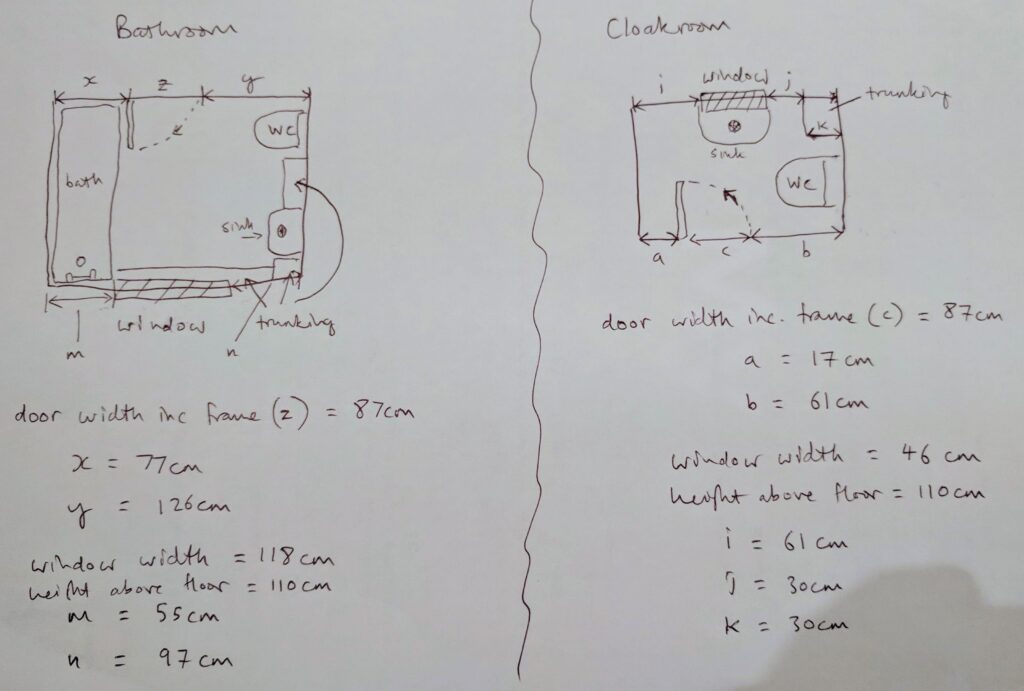 Bathroom
x z y
WC
bath
sink
m window n trunking
door width inc frame (z) = 87cm
x = 77cm
y = 126cm
window width = 118cm
height above floor = 110cm
m = 55cm
n = 97cm
Cloakroom
i window j trunking
k
sink
WC
a c b
door width inc. frame (c) = 87cm
a = 17cm
b = 61cm
window width = 46 cm
height above floor = 110cm
i = 61cm
j = 30cm
k = 30cm